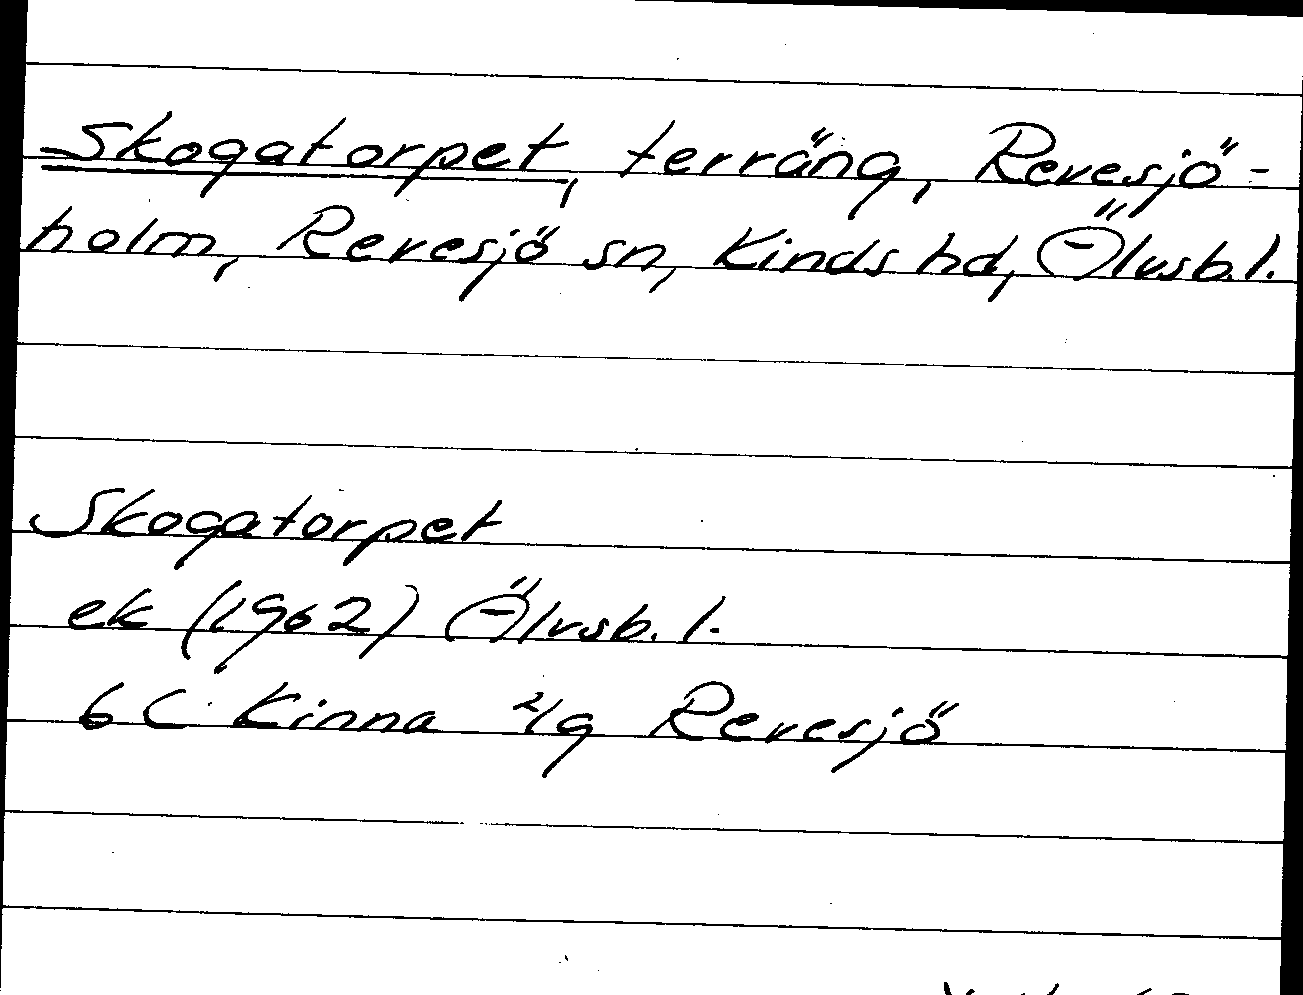 Skogatorpet, terräng, Revesjö-
holm, Revesjö sn, Kinds hd, Älvsb. l.
Skogatorpet
ek (1962) Älvsb. l.
6 C Kinna 4/g Revesjö